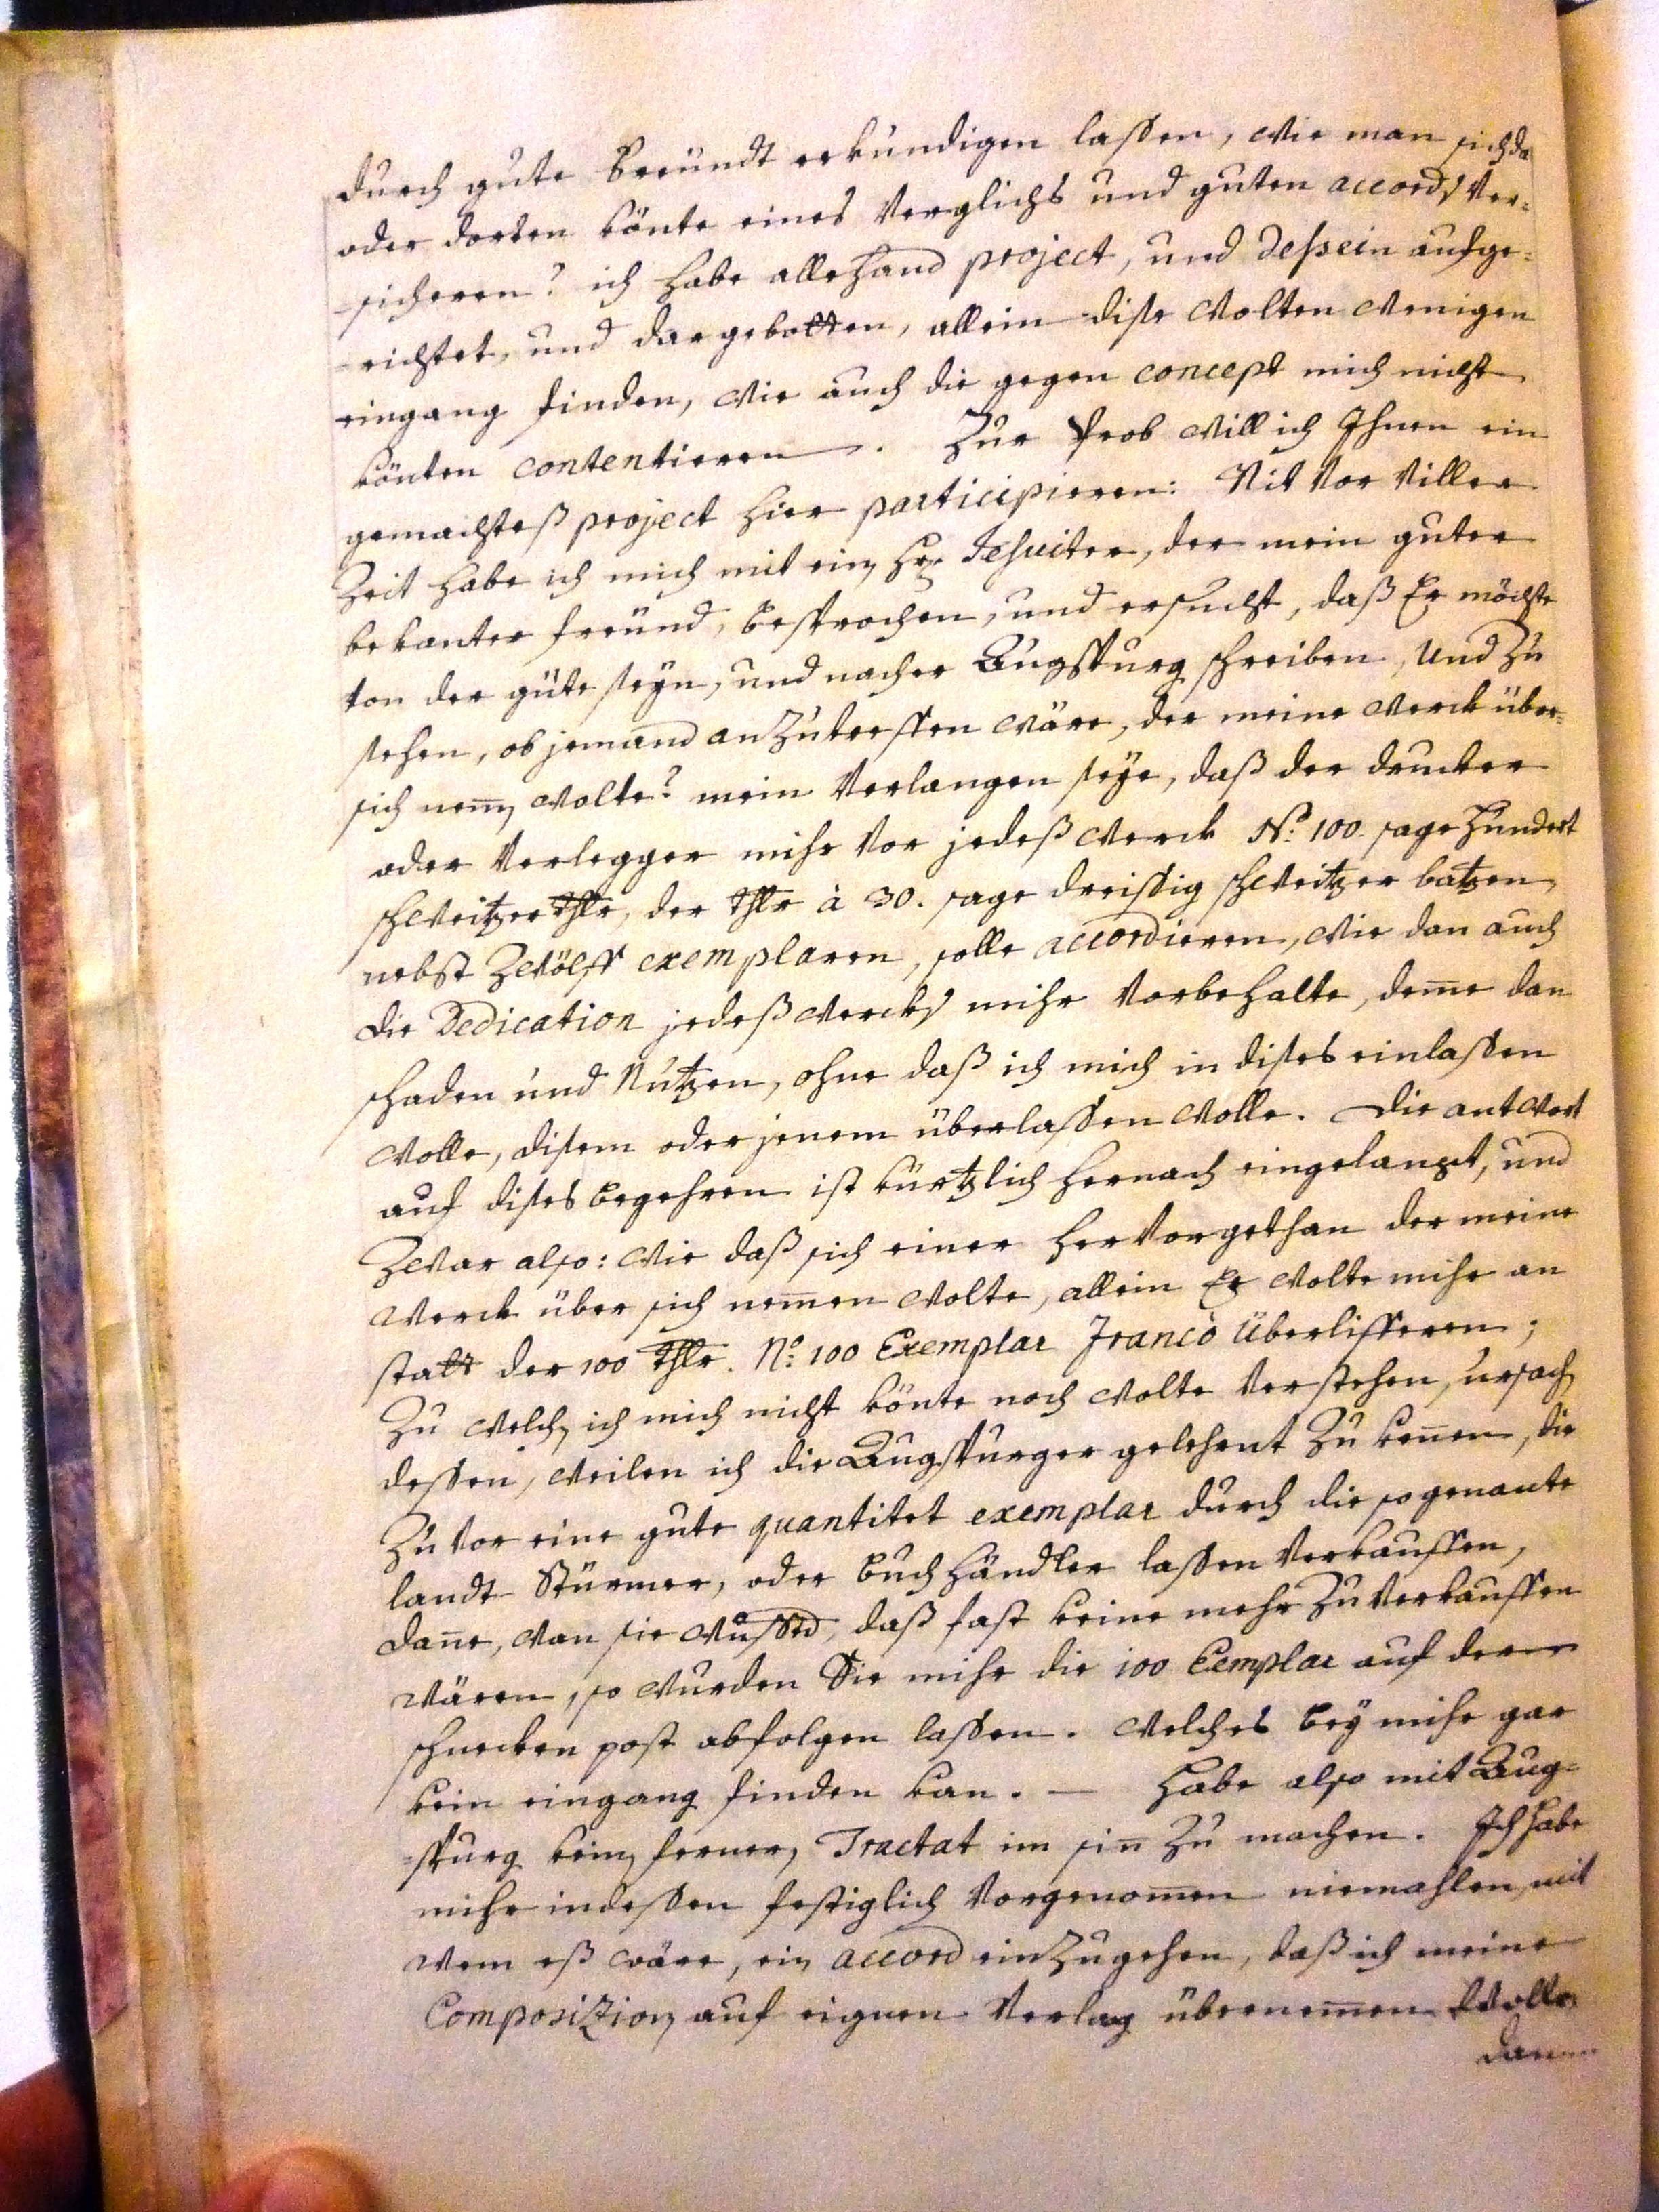 durch gute Freündt erkundigen lassen, wie man sich da
oder dorten könte eines Verglichs und guten accords Ver-
sicheren? ich habe allehand project, und Dessein aufge-
richtet, und dargebotten, allein dise wolten wenigen
eingang finden, wie auch die gegen concept mich nicht
könten contentieren. Zur Prob will ich Ihnen ein
gemachteß project hier participieren: Nit vor viller
Zeit habe ich mich mit ein H: Jesuiter, der mein guter
bekanter freünd, besprochen, und ersucht, daß Er möchte
von der güte seyn, und nacher Augspurg schreiben, und zu
sehen, ob jemand anzutreffen wäre, der meine werck über-
sich nem̄ wolte? mein Verlangen seye, daß der drucker
oder Verlegger mihr vor jedeß werck No: 100. sage hundert
schweitzer thlr, der thlr à 30. sage dreissig schweitzer batzen,
nebst zwölff exemplaren, solle accordieren, wie dan auch
die Dedication jedeß wercks mihr vorbehalte, dem̄e dan
schaden und Nutzen, ohne daß ich mich in dises einlassen
wolle, disem oder jenem überlassen wolle. Die antwort
auf dises begehren ist kürtzlich hernach eingelangt, und
zwar also: wie daß sich einer hervorgethan der meine
werck über sich nem̄en wolte, allein Er wolte mihr an
statt der 100 thlr. No: 100 Exemplar Francò überlifferen;
Zu welch ich mich nicht könte noch wolte verstehen, ursach
dessen, weilen ich die Augspurger gelehrnt zu ken̄en, die
zuvor eine gute quantitet exemplar durch die so genante
landt Stürmer, oder Buchhändler lassen verkauffen,
dan̄e, wan sie wussten, daß fast keine mehr zu verkauffen
wären, so wurden Sie mihr die 100 Exemplar auf der
schnecken post abfolgen lassen. welches bey mihr gar
kein eingang finden kan. — habe also mit Aug-
spurg kein ferner Tractat im sin̄ zu machen. Ich habe
mihr indessen festiglich vorgenom̄en niemahlen, mit
wem eß wäre, ein accord einzugehen, daß ich meine
Composizion auf eignen Verlag übernem̄en wolle